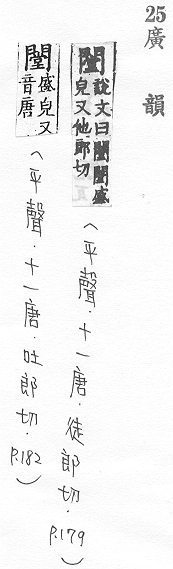 25廣韻
闛說文曰闛闛盛皃又他郎切（平聲．十一唐．徒郎切．P.179）
闛盛皃又音唐（平聲．十一唐．吐郎切．P.182）